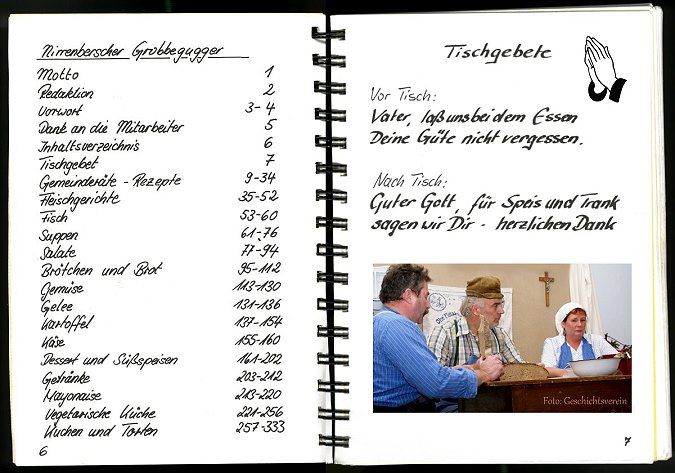 Nirrenberscher Grobbegugger
Motto 1
Redaktion 2
Vorwort 3-4
Dank an die Mitarbeiter 5
Inhaltsverzeichnis 6
Tischgebet 7
Gemeinderäte - Rezepte 9-34
Fleischgerichte 35-52
Fisch 53-60
Suppen 61-76
Salate 77-94
Brötchen und Brot 95-112
Gemüse 113-130
Gelee 131-136
Kartoffel 137-154
Käse 155-160
Dessert und Süßspeisen 161-202
Getränke 203-212
Mayonaise 213-220
Vegetarische Küche 221-256
Kuchen und Torten 257-333
6
Tischgebete
Vor Tisch:
Vater, laß uns bei dem Essen
Deine Güte nicht vergessen.
Nach Tisch:
Guter Gott, für Speis und Trank
sagen wir Dir - herzlichen Dank
Foto: Geschichtsverein
7